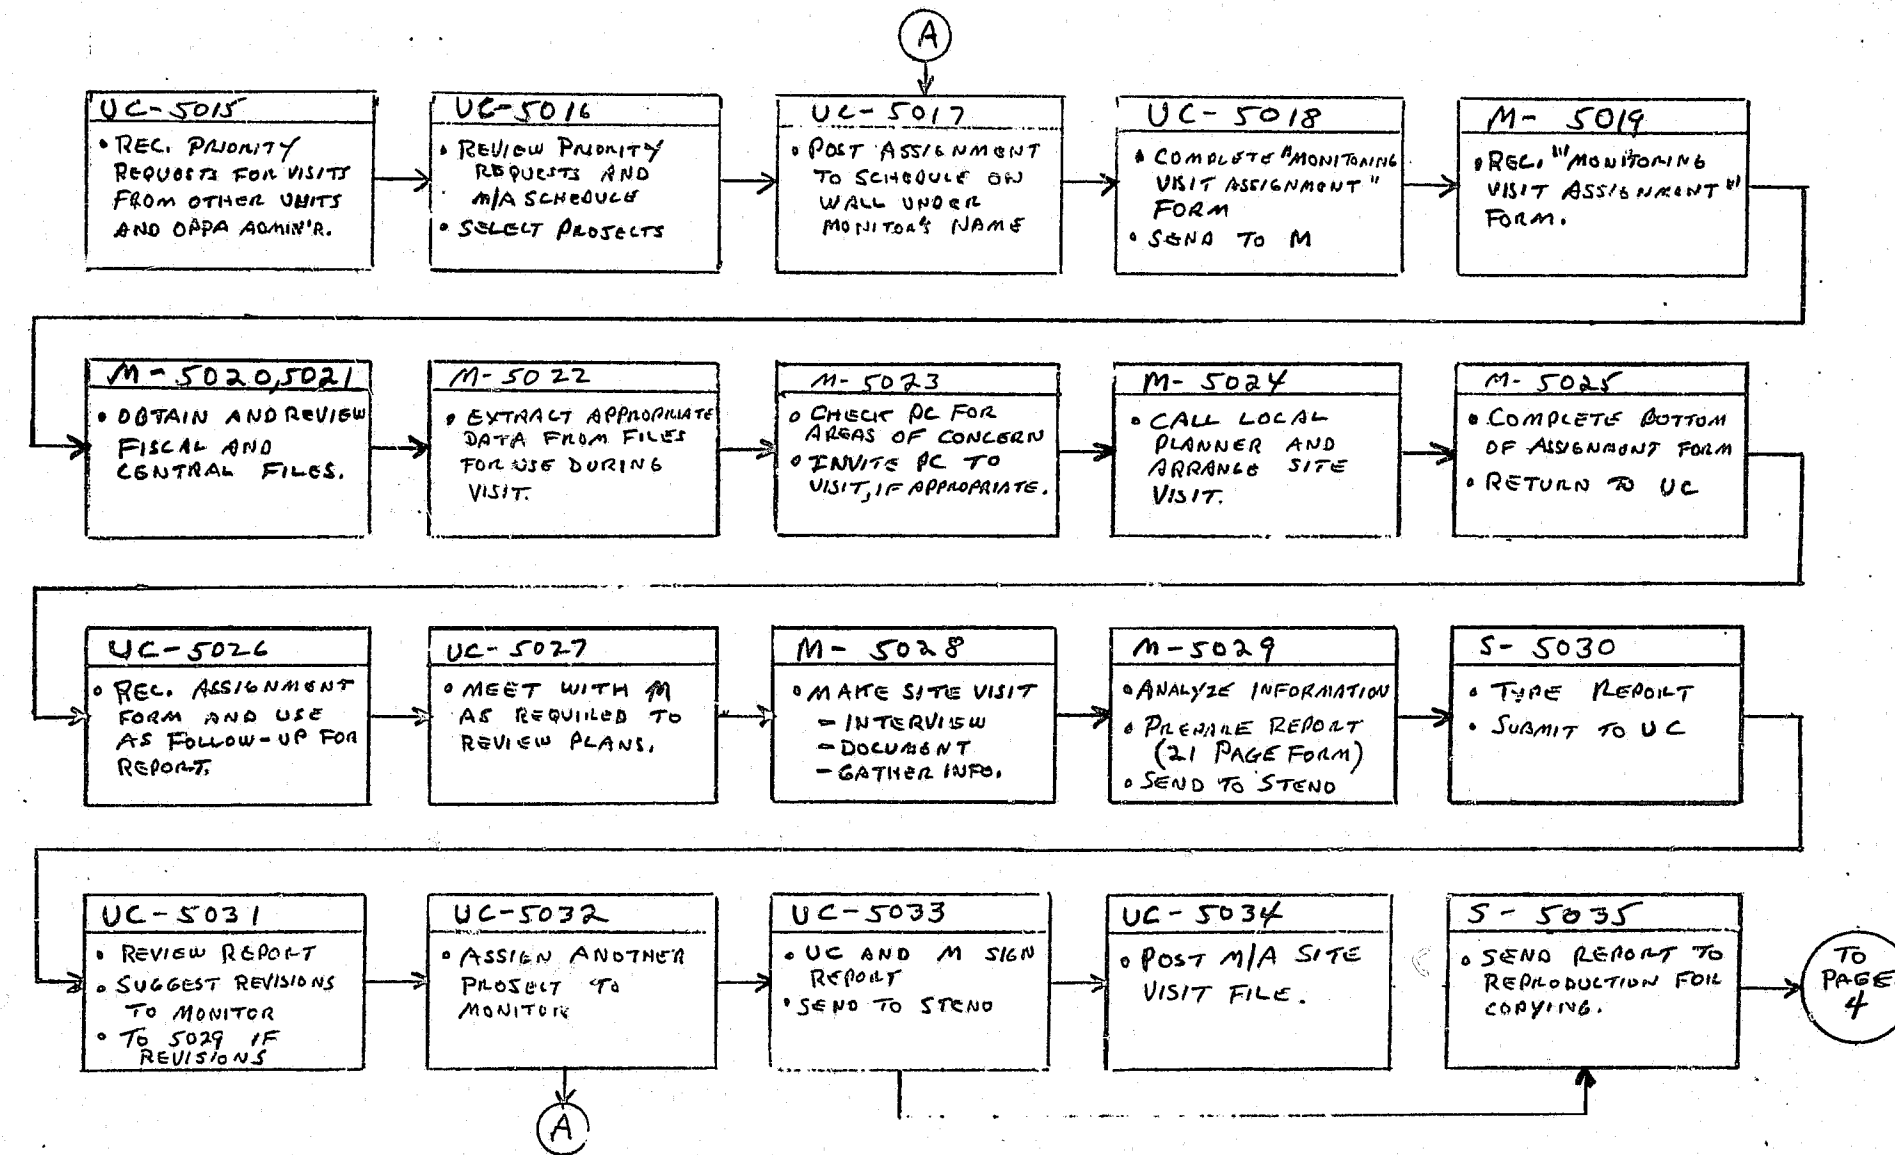 A
UC-5015
• REC. PRIORITY
REQUESTS FOR VISITS
FROM OTHER UNITS
AND OPPA ADMIN'R.
UC-5016
• REVIEW PRIORITY
REQUESTS AND
M/A SCHEDULE
• SELECT PROJECTS
UC-5017
• POST ASSIGNMENT
TO SCHEDULE ON
WALL UNDER
MONITOR'S NAME
UC-5018
• COMPLETE "MONITORING
VISIT ASSIGNMENT"
FORM
• SEND TO M
M-5019
• REC. "MONITORING
VISIT ASSIGNMENT"
FORM.
M-5020,5021
• OBTAIN AND REVIEW
FISCAL AND
CENTRAL FILES.
M-5022
• EXTRACT APPROPRIATE
DATA FROM FILES
FOR USE DURING
VISIT.
M-5023
• CHECK PC FOR
AREAS OF CONCERN
• INVITE PC TO
VISIT, IF APPROPRIATE.
M-5024
• CALL LOCAL
PLANNER AND
ARRANGE SITE
VISIT.
M-5025
• COMPLETE BOTTOM
OF ASSIGNMENT FORM
• RETURN TO UC
UC-5026
• REC. ASSIGNMENT
FORM AND USE
AS FOLLOW-UP FOR
REPORT.
UC-5027
• MEET WITH M
AS REQUIRED TO
REVIEW PLANS.
M-5028
• MAKE SITE VISIT
- INTERVIEW
- DOCUMENT
- GATHER INFO.
M-5029
• ANALYZE INFORMATION
• PREPARE REPORT
(21 PAGE FORM)
• SEND TO STENO
S-5030
• TYPE REPORT
• SUBMIT TO UC
UC-5031
• REVIEW REPORT
• SUGGEST REVISIONS
TO MONITOR
• TO 5029 IF
REVISIONS
UC-5032
• ASSIGN ANOTHER
PROJECT TO
MONITOR
UC-5033
• UC AND M SIGN
REPORT
• SEND TO STENO
UC-5034
• POST M/A SITE
VISIT FILE.
S-5035
• SEND REPORT TO
REPRODUCTION FOR
COPYING.
TO
PAGE
4
A